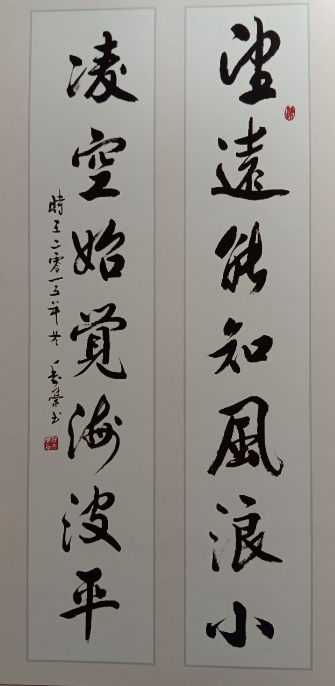 望遠能知風浪小
凌空始覺海波平
時在二零一五年冬